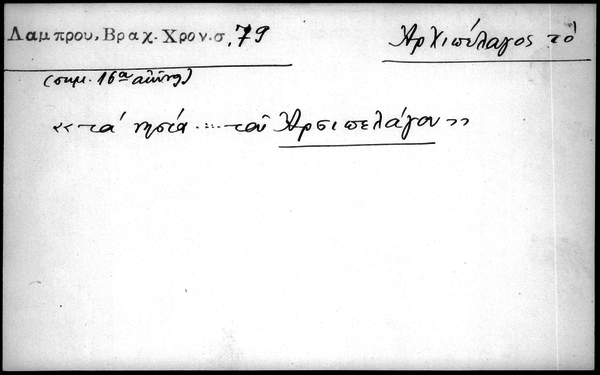 Λαμπρου, Βραχ. Χρον. σ. 79
Ἀρχιπέλαγος τὸ
(σημ. 16ᵃ αἰῶνος)
«τὰ νησιά .... τοῦ Ἀρσιπελάγου»